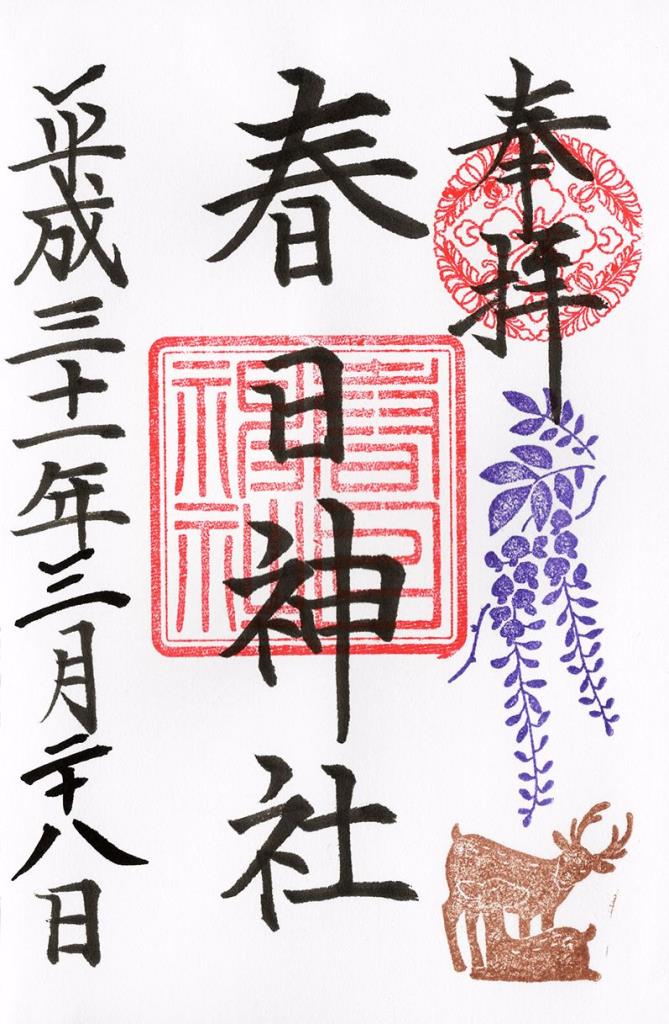 奉拝
春日神社
春日神社
平成三十一年三月二十八日